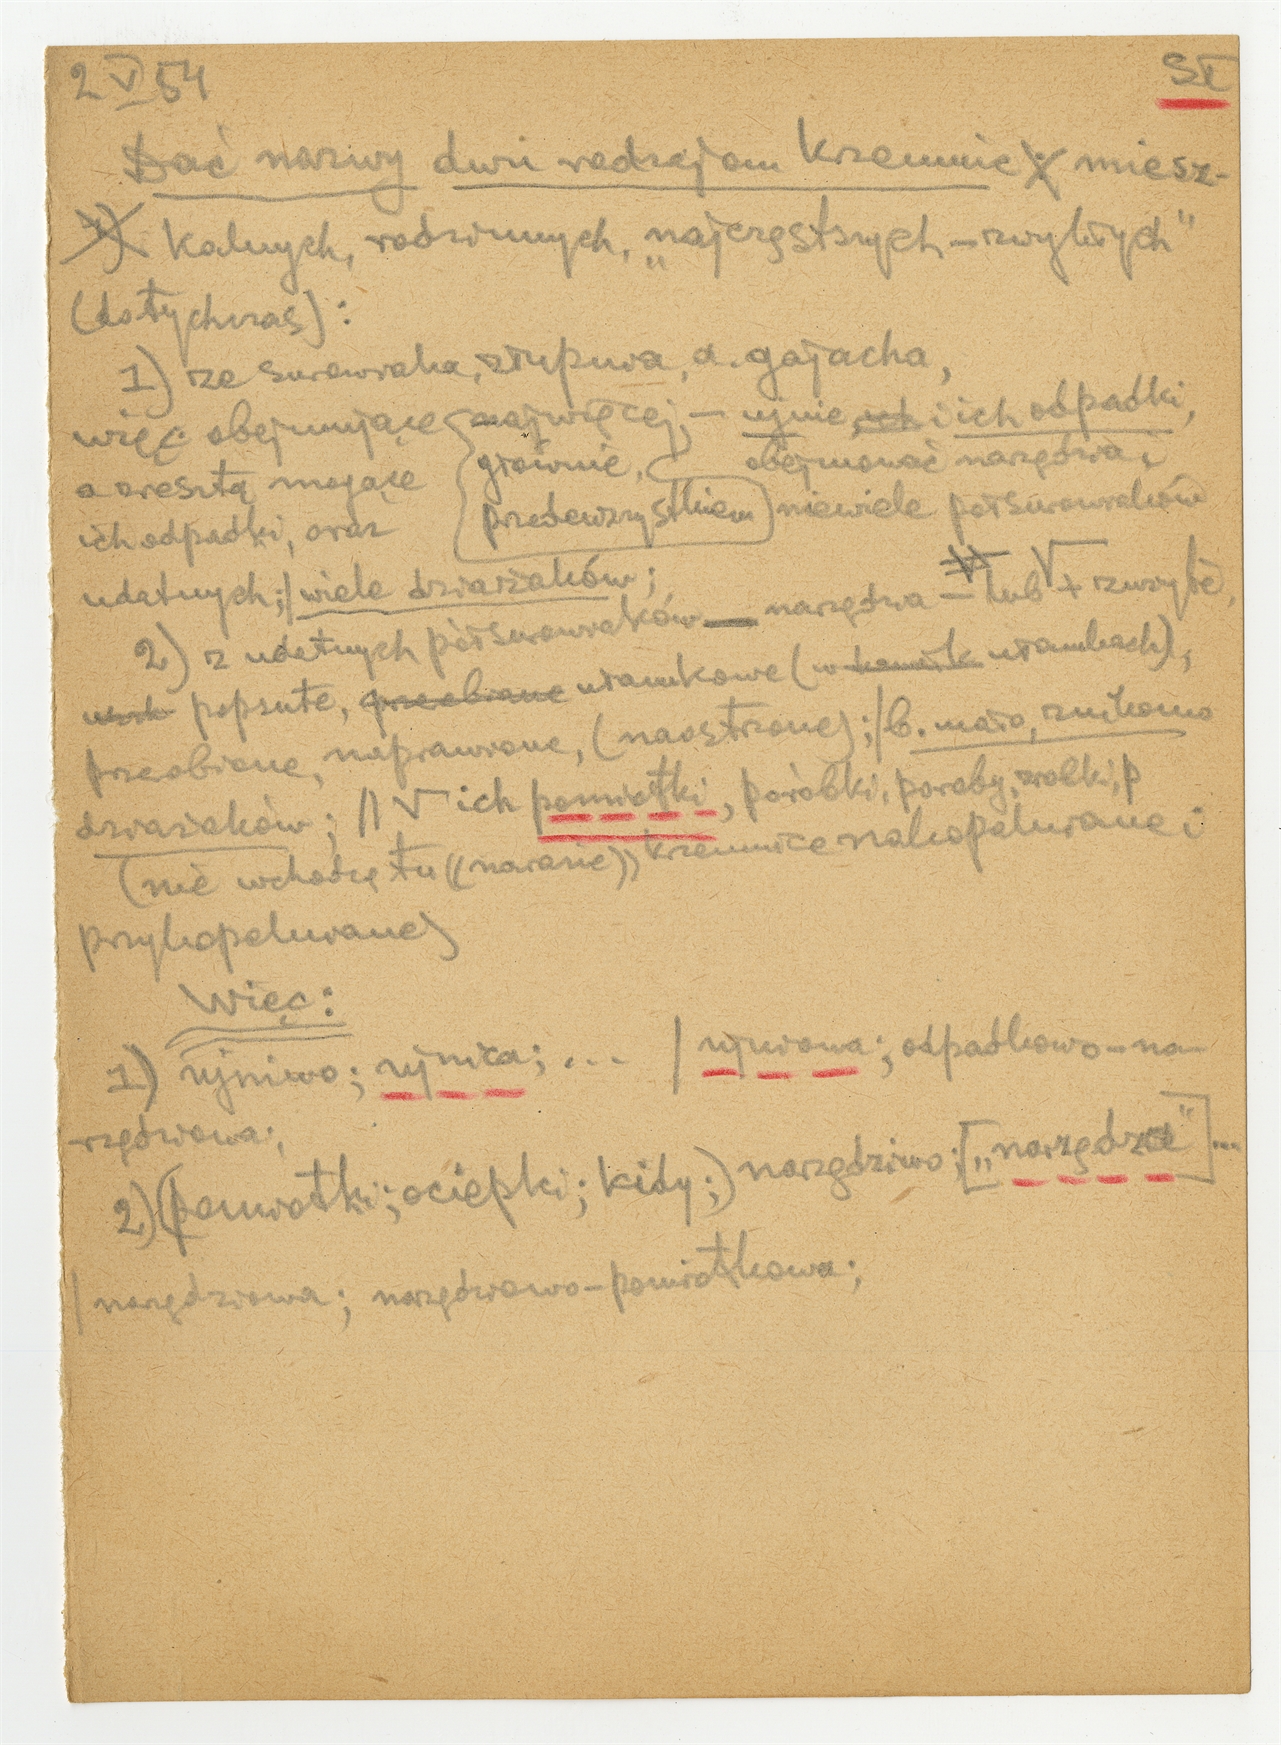 2 V 54 SI
Dać nazwy dwu rodzajom krzemnic miesz-
kalnych, rodzinnych, „najczęstszych – zwykłych"
(dotychczas):
1) ze surowiaka, złupuwa, a. gajacha,
więc obejmujące najwięcej, – ujnie, i ich odpadki,
a oresztą mające głównie, obejmować narzędzia i
ich odpadki, oraz przedewszystkiem niewiele półsurowiaków
udatnych; / wiele dziaziaków;
2) z udatnych półsurowiaków — narzędzia – lub + zużyte,
popsute, przeobiane ułamkowe (w ułamkach),
przeobiane, naprawione, (naostrzone); / b. mało, znikomo
dziaziaków; // √ ich pomiotki, poróbki, poroby, zrobki, p
(nie wchodzą tu ((narazie)) krzemnice nakopalniane i
przykopalniane)
Więc:
1) ujniwo; ujnica; ... / ujniowa; odpadkowo-na-
rzędziowa;
2) (pomiotki; ociepki; kidy;) narzędziwo; [„narzędzie"] ...
/ narzędziowa; narzędziowo-pomiotkowa;